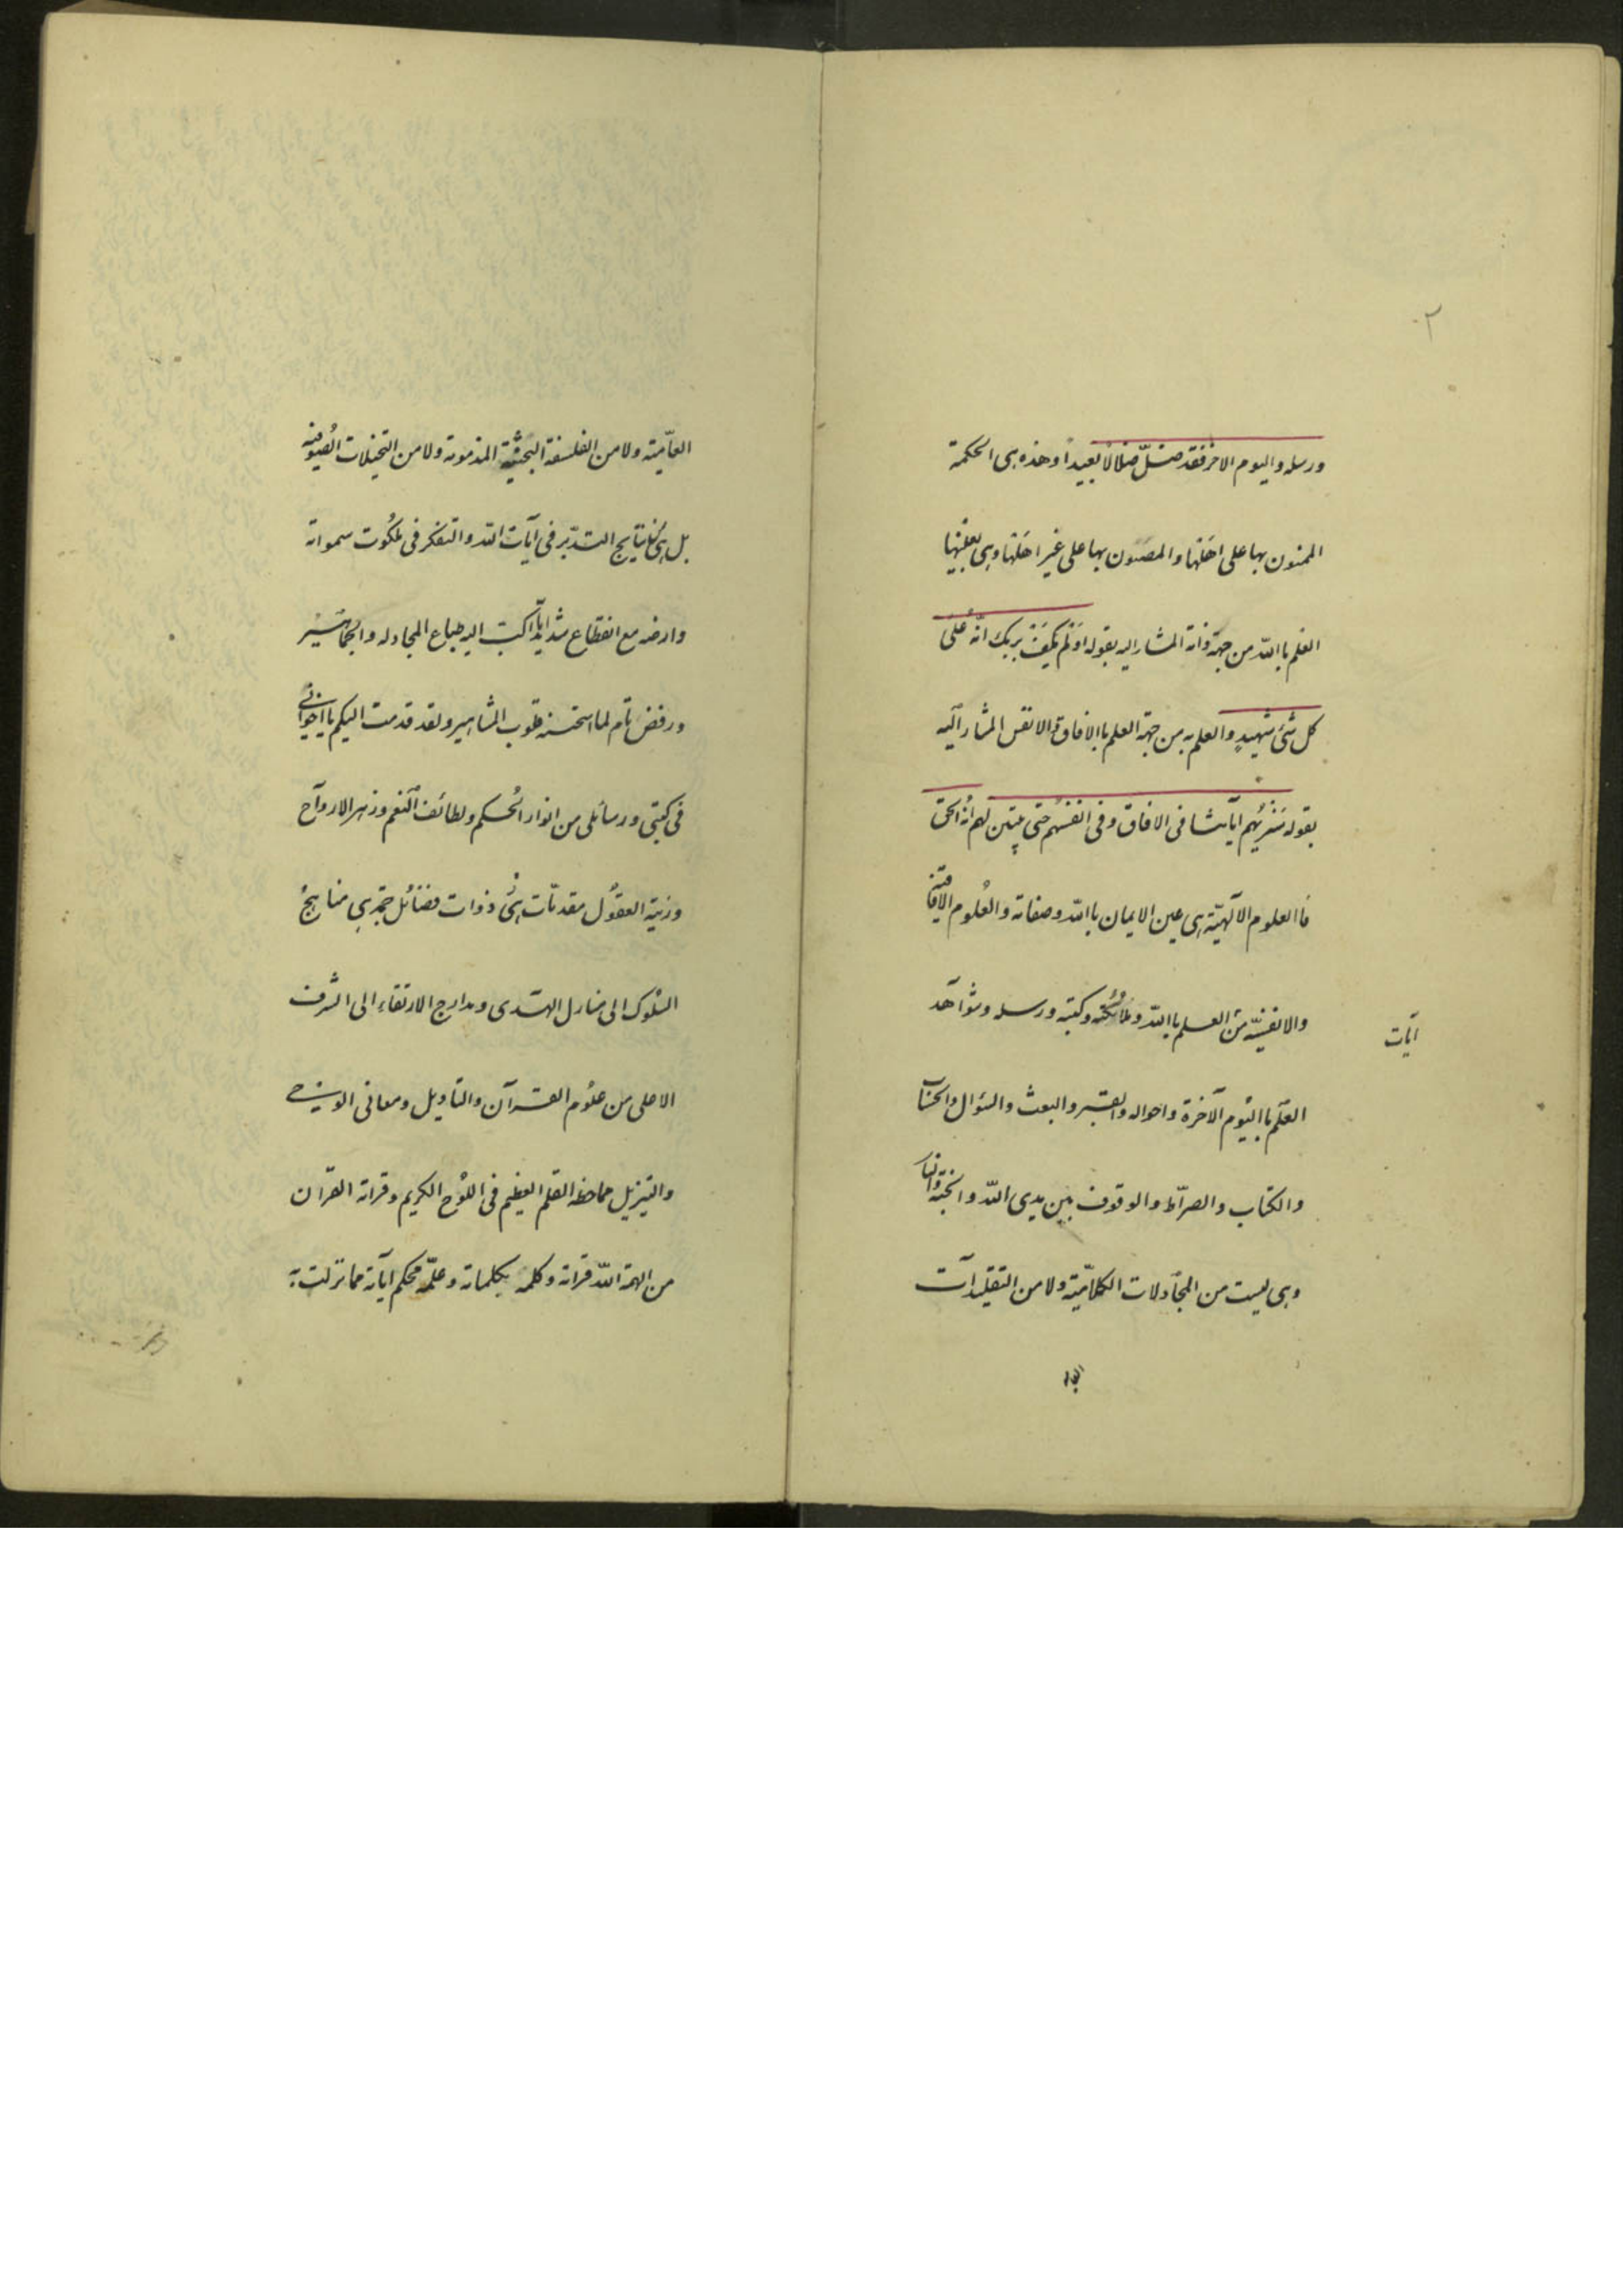 ٢
ورسله واليوم الاخر فقد ضلّ ضلالا بعيداً وهذه هى الحكمة
الممنون بها على اهلها والمصون بها على غير اهلها وهى بعينها
العلم باالله من جهة ذاته المشار اليه بقوله اولم يكف بربك انّه على
كل شئ شهيدٍ والعلم به من جهة العلم باالافاق والانفس المشار اليه
بقوله سنريهم آياتنا فى الافاق وفى انفسهم حتى يتبين لهم انه الحق
فاالعلوم الآلهيّة هى عين الايمان باالله وصفاته والعلوم الافاقية
والانفسيّة من العلم باالله وملائكته وكتبه ورسله وشواهد
آيات
العلم باليوم الآخرة واحواله والقبر والبعث والسؤال والحساب
والكتاب والصرّاط والوقوف بين يدى الله والجنة والنار
وهى ليست من المجادلات الكلاميّة ولا من التقليدات
العاميّة ولا من الفلسفة البحثيّة المذمومة ولا من التخيلات الصوفية
بل هى نتايج التدبّر فى آيات الله والتفكر فى ملكوت سمواته
وارضه مع انقطاع شديد عما اكبّ اليه طباع المجادله والجماهير
ورفض تام لما استحسنه قلوب المشاهير ولقد قدمت اليكم يا اخوانى
فى كتبى ورسائلى من انوار الحكم ولطائف النعم وزهر الارواح
وزينة العقول مقدمات هى ذوات فضائل جمّة هى مناهج
السلوك الى منازل الهدى ومدارج الارتقاء الى الشرف
الاعلى من علوم القرآن والتاويل ومعانى الوحى
والتنزيل مما خطه القلم العظيم فى اللوح الكريم وقراه القرّان
من الهمه الله قراته وكلمه بكلماته وعلّمه محكم آياته مما نزلت به